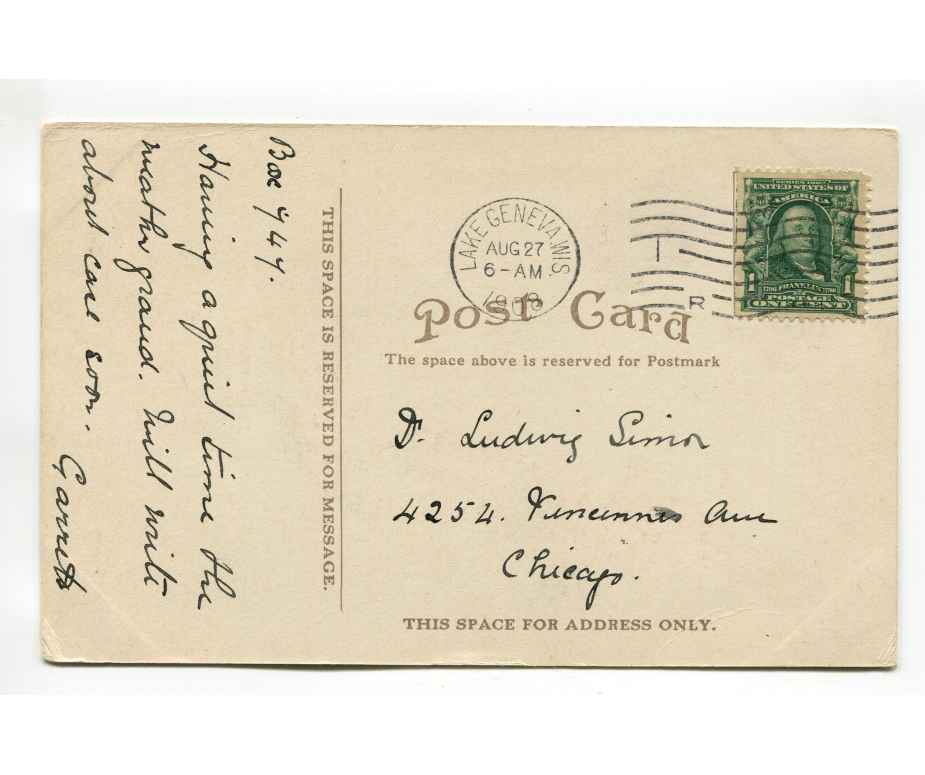 Box
Having a quiet time the
weather grand. Will write
about case soon.
Garrett
THIS SPACE IS RESERVED FOR MESSAGE.
LAKE GENEVA, WIS.
AUG 27
6-AM
1908
R
SERIES 1902
UNITED STATES OF
AMERICA
1 FRANKLIN 1
POSTAGE
ONE CENT
Post Card
The space above is reserved for Postmark
Dr. Ludwig Simon
4254. Vincennes Ave
Chicago.
THIS SPACE FOR ADDRESS ONLY.